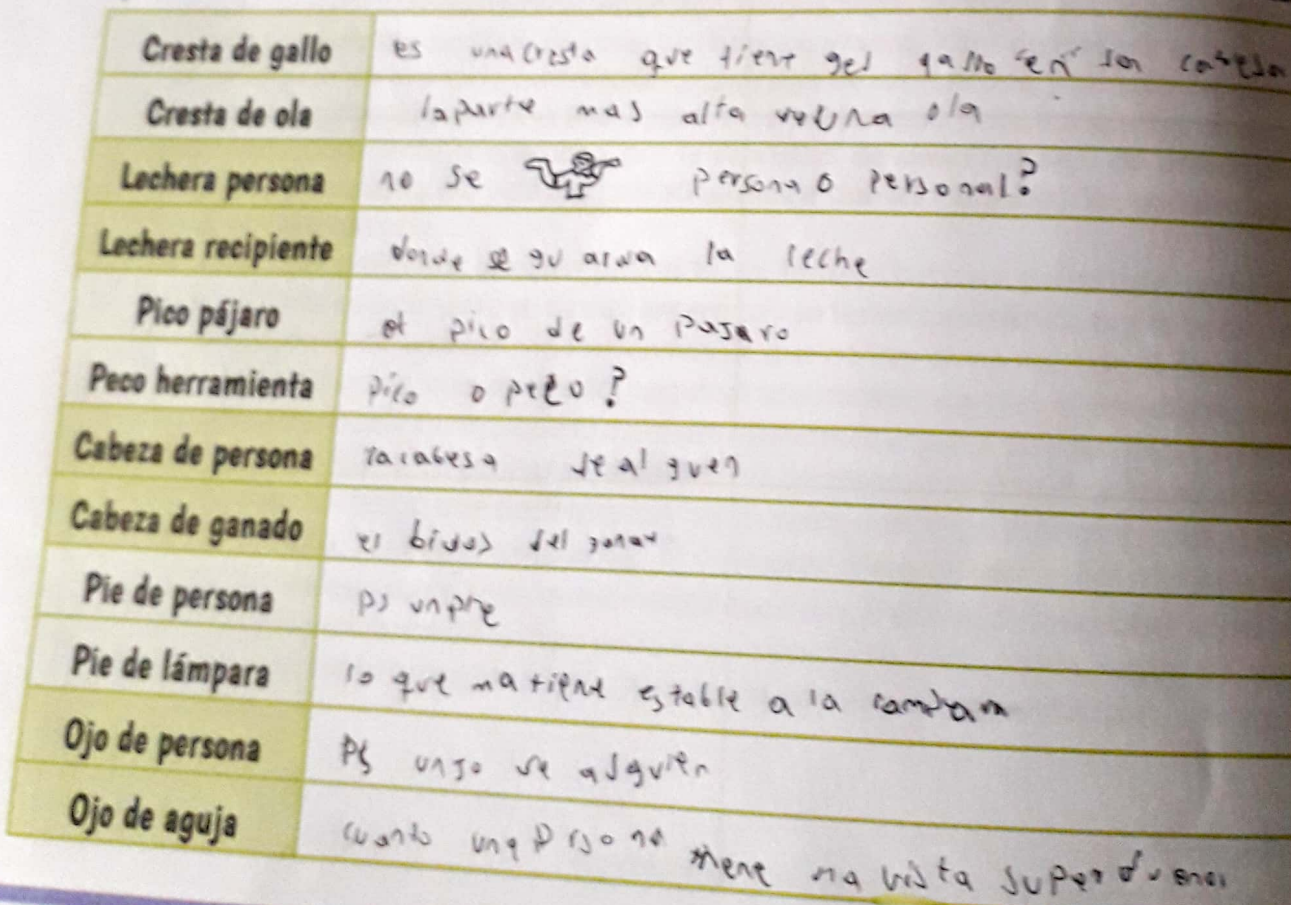 Cresta de gallo es una cresta que tiene gel gallo en su cabesa
Cresta de ola la parte mas alta de una ola
Lechera persona no se persona o personal?
Lechera recipiente donde se guarda la leche
Pico pájaro el pico de un Pajaro
Peco herramienta pico o peco?
Cabeza de persona la cabesa de alguen
Cabeza de ganado el del
Pie de persona ps un pie
Pie de lámpara lo que matiene estable a la
Ojo de persona Ps un jo de alguien
Ojo de aguja cuanto una persona tiene na vista super